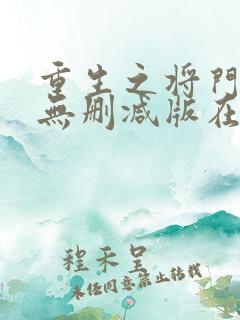 重生之将門
無删减版在
程禾呈
未经同意禁止转载